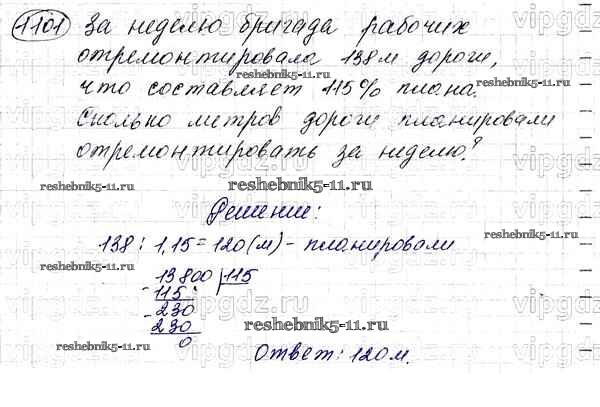 1101 За неделю бригада рабочих
отремонтировала 138 м дороги,
reshebnik5-11.ru reshebnik5-11.ru
что составляет 115% плана.
Сколько метров дороги планировали
отремонтировать за неделю?
reshebnik5-11.ru reshebnik5-11.ru
Решение:
138 : 1,15 = 120 (м) - планировали
reshebnik5-11.ru
13800 | 115
- 115
- 230
230
reshebnik5-11.ru
0
reshebnik5-11.ru
Ответ: 120 м.
vipgdz.ru